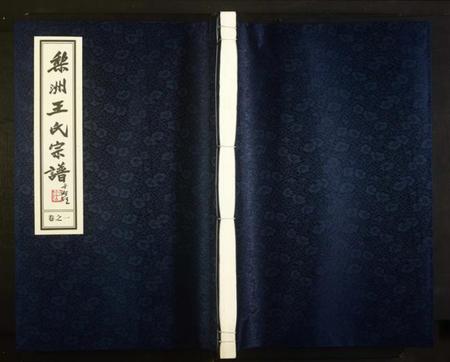 黎洲王氏宗譜
卷之一